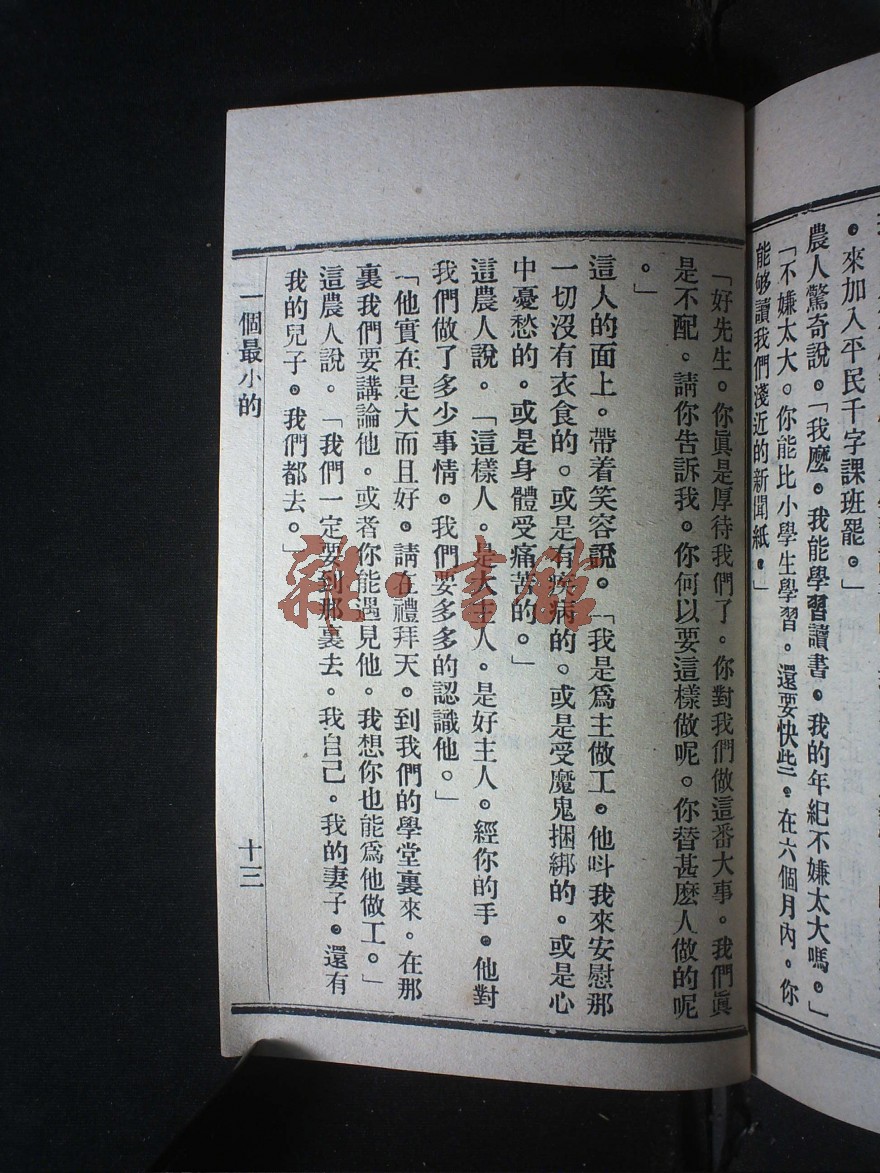 。來加入平民千字課班罷。」
農人驚奇說。「我麽。我能學習讀書。我的年紀不嫌太大嗎。」
「不嫌太大。你能比小學生學習。還要快些。在六個月內。你
能够讀我們淺近的新聞紙。」
「好先生。你眞是厚待我們了。你對我們做這番大事。我們眞
是不配。請你告訴我。你何以要這樣做呢。你替甚麽人做的呢
。」
這人的面上。帶着笑容說。「我是爲主做工。他呌我來安慰那
一切沒有衣食的。或是有疾病的。或是受魔鬼捆綁的。或是心
中憂愁的。或是身體受痛苦的。」
這農人說。「這樣人。是大主人。是好主人。經你的手。他對
我們做了多少事情。我們要多多的認識他。」
「他實在是大而且好。請在禮拜天。到我們的學堂裏來。在那
裏我們要講論他。或者你能遇見他。我想你也能爲他做工。」
這農人說。「我們一定要到那裏去。我自己。我的妻子。還有
我的兒子。我們都去。」
一個最小的 十三
雜·書館